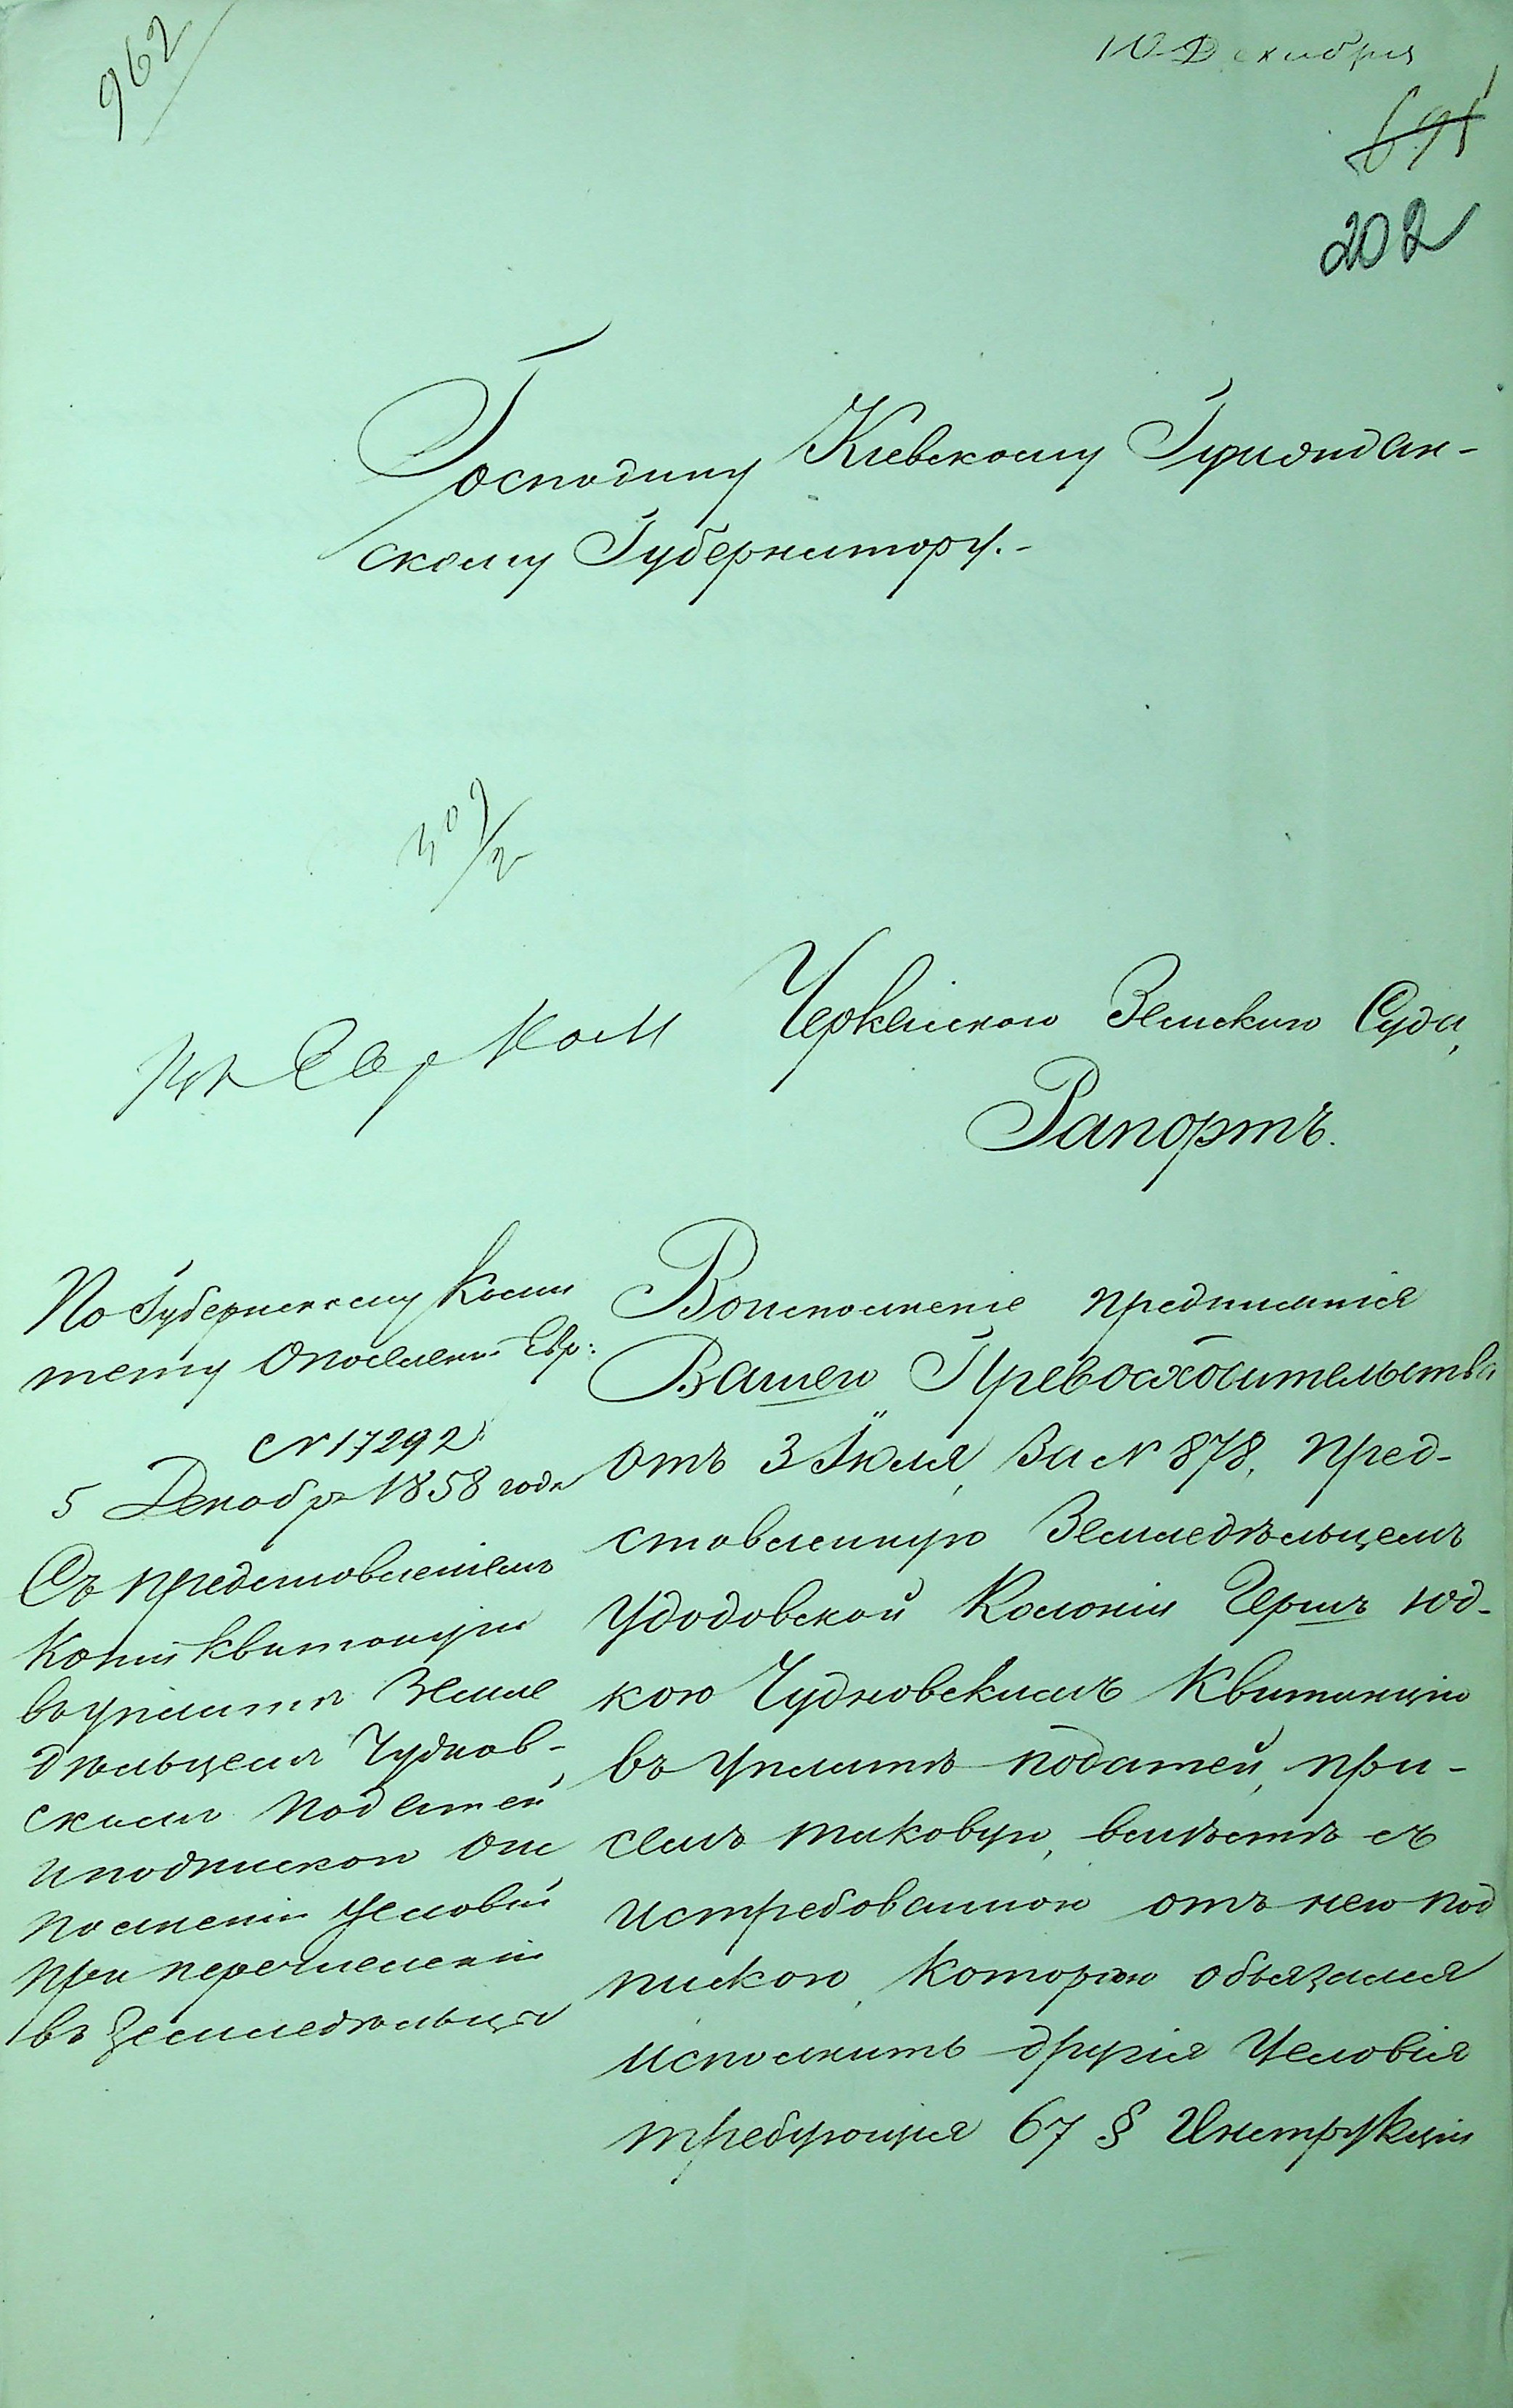 962
10 Декабря
691
202
Господину Кіевскому Граждан-
скому Губернатору.-
309/2
Черкаскаго Земскаго Суда,
Рапортъ.
По Губернскому Коми
тету О поселеніи Евр:
№ 17292
5 Декабря 1858 года
Съ представленіемъ
Копіи квитанціи
въ уплатѣ Земле
дѣльцемъ Чуднов-
скимъ Податей
и подпиской О ис
полненіи Условій
при перечисленіи
въ Земледѣльцы
Воисполненіе предписанія
Вашего Превосходительства
отъ 3 Іюля, за № 878, пред-
ставленную Земледѣльцемъ
Удодовской Колоніи Герш Юд-
кою Чудновскимъ Квитанцію
въ Уплатѣ податей, при-
семъ таковую, вмѣстѣ съ
истребованною отъ него под
пискою, Которою обязался
исполнить другія Условія
требующія 67 § Инструкціи